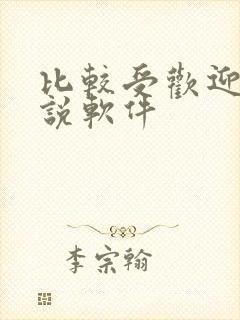 比較受歡迎
說軟件
李宗翰